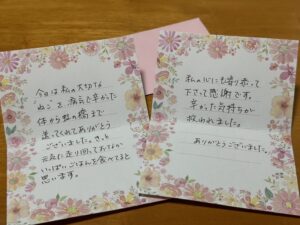 今日は私の大切な
ねこを、病気で辛かった
体から虹の橋まで
送ってくれてありがとう
ございました。きっと
元気に走り回っておなか
いっぱいごはんを食べてると
思います。
私の心にも寄り添って
下さって感謝です。
辛かった気持ちが
救われました。
ありがとうございました。